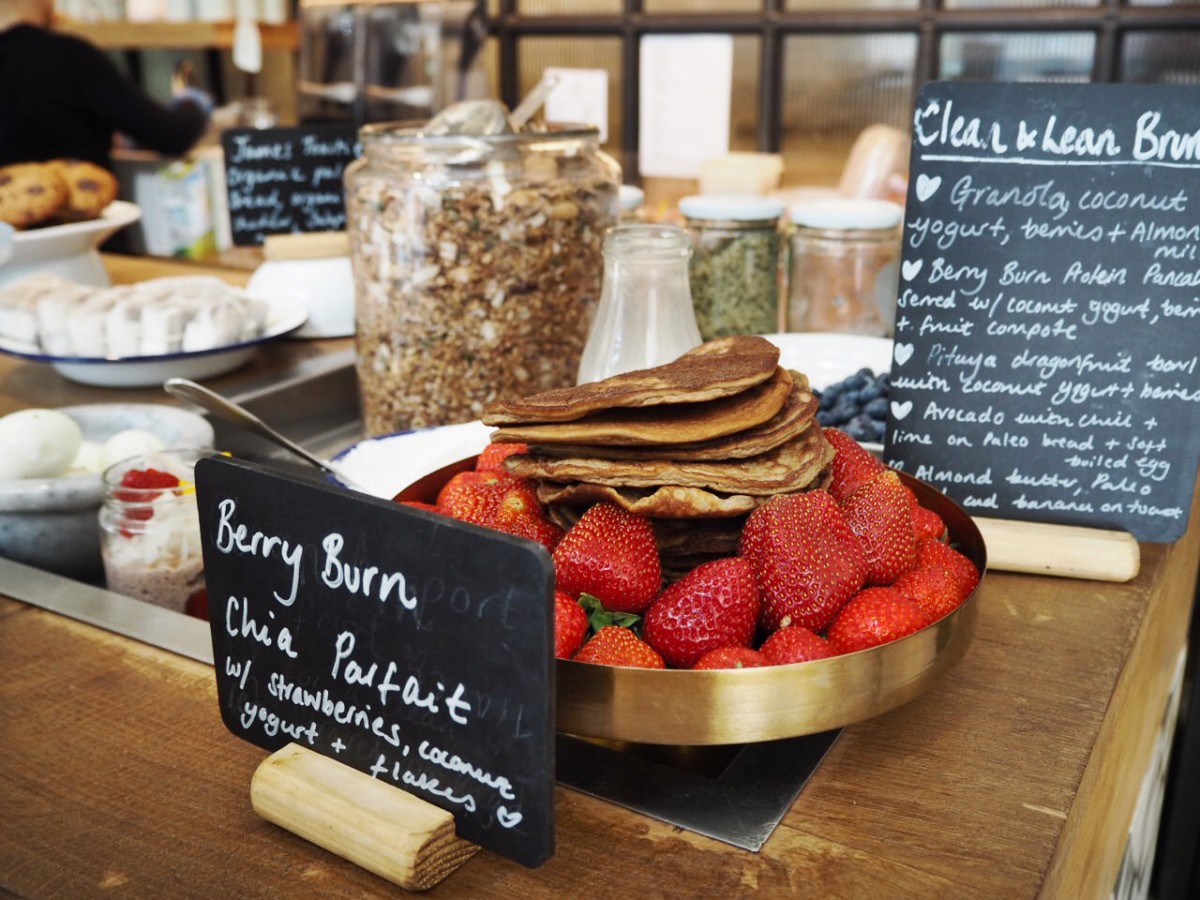 Berry Burn
Chia Parfait
w/ strawberries, coconut
yogurt + flakes
Clean & Lean Brun
Granola, coconut
yogurt, berries + Almon
milk
Berry Burn Protein Pancak
served w/ coconut yogurt, berr
+ fruit compote
Pitaya dragonfruit bowl
with coconut yogurt + berries
Avocado with chili +
lime on Paleo bread + soft
boiled egg
Almond butter, Paleo
and banana on toast
James
organic
bread, organic